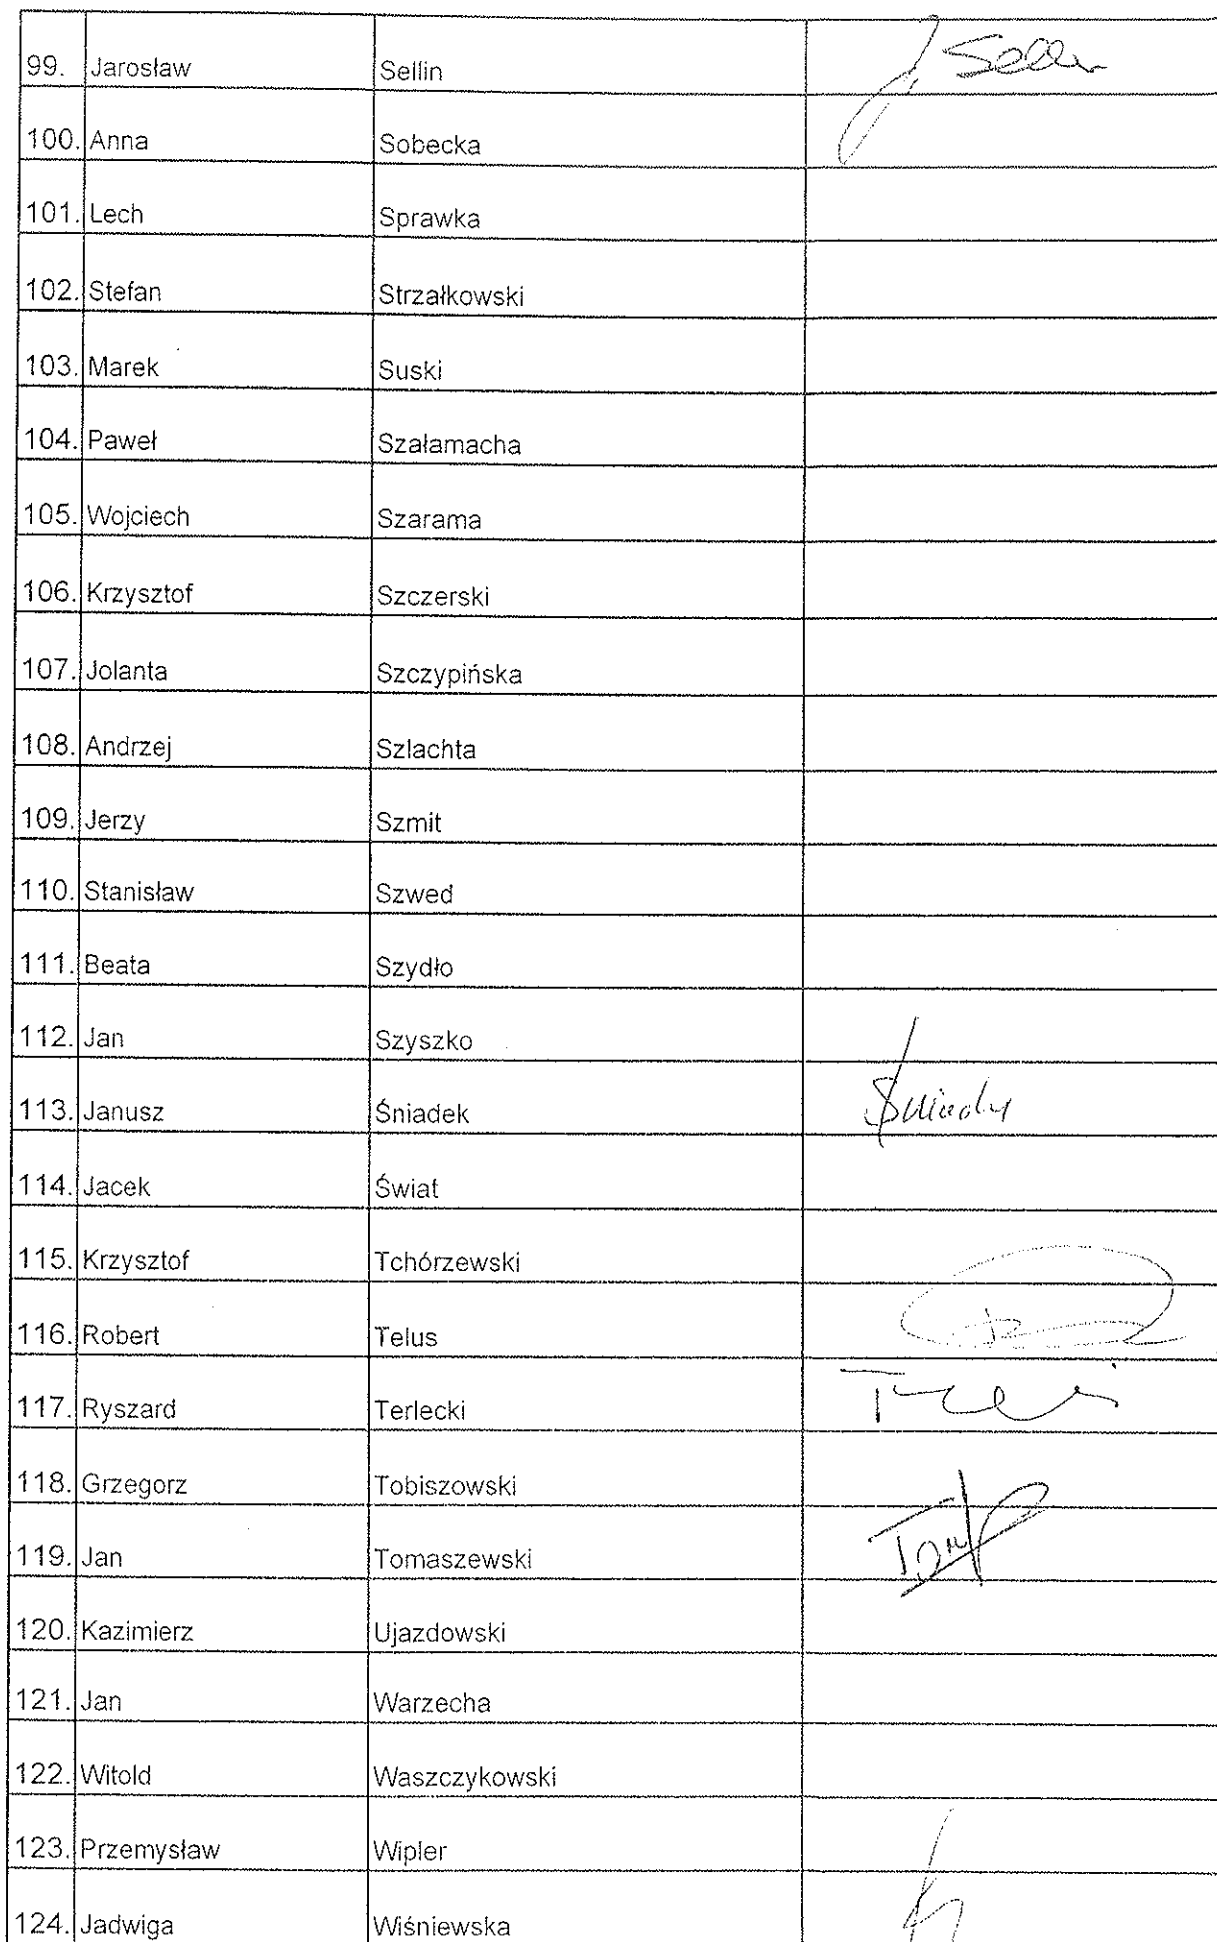 99. Jarosław Sellin J Sellin
100. Anna Sobecka
101. Lech Sprawka
102. Stefan Strzałkowski
103. Marek Suski
104. Paweł Szałamacha
105. Wojciech Szarama
106. Krzysztof Szczerski
107. Jolanta Szczypińska
108. Andrzej Szlachta
109. Jerzy Szmit
110. Stanisław Szwed
111. Beata Szydło
112. Jan Szyszko
113. Janusz Śniadek
114. Jacek Świat
115. Krzysztof Tchórzewski
116. Robert Telus
117. Ryszard Terlecki
118. Grzegorz Tobiszowski
119. Jan Tomaszewski
120. Kazimierz Ujazdowski
121. Jan Warzecha
122. Witold Waszczykowski
123. Przemysław Wipler
124. Jadwiga Wiśniewska